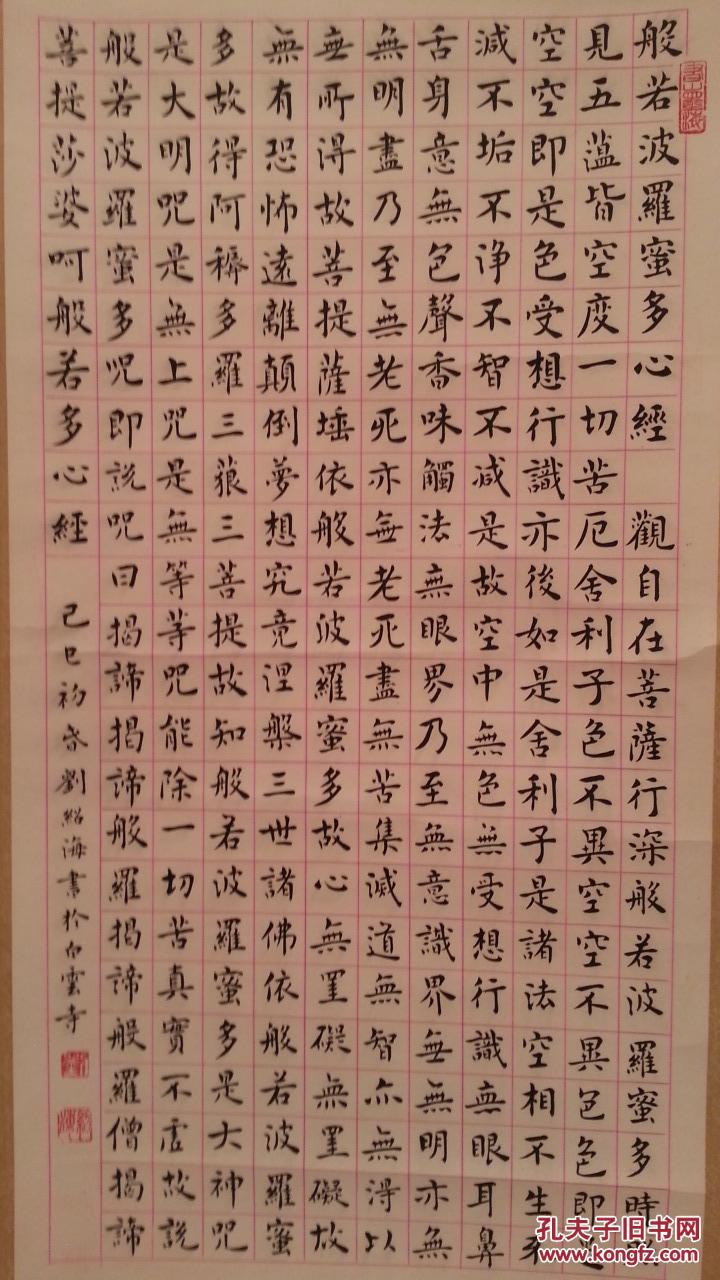 般若波羅蜜多心經 觀自在菩薩行深般若波羅蜜多時照
見五蕰皆空度一切苦厄舍利子色不異空空不異色色即是
空空即是色受想行識亦後如是舍利子是諸法空相不生不
減不垢不浄不智不減是故空中無色無受想行識無眼耳鼻
舌身意無色聲香味觸法無眼界乃至無意識界無無明亦無
無明盡乃至無老死亦無老死盡無苦集滅道無智亦無得以
無所得故菩提薩埵依般若波羅蜜多故心無罣礙無罣礙故
無有恐怖遠離顛倒夢想究竟涅槃三世諸佛依般若波羅蜜
多故得阿耨多羅三藐三菩提故知般若波羅蜜多是大神咒
是大明咒是無上咒是無等等咒能除一切苦真實不虛故說
般若波羅蜜多咒即說咒曰揭諦揭諦般羅揭諦般羅僧揭諦
菩提莎婆呵般若多心經 己巳初春劉紹海書於白雲寺
孔夫子旧书网
www.kongfz.com